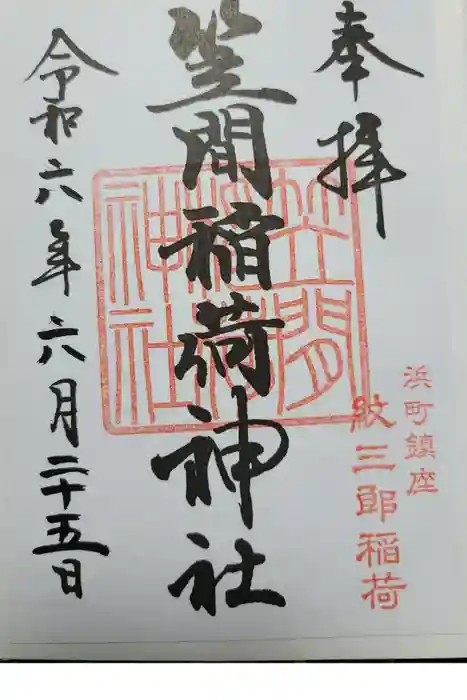 奉拝
浜町鎮座
紋三郎稲荷
笠間稲荷神社
笠間
稲荷
神社
令和六年六月二十五日